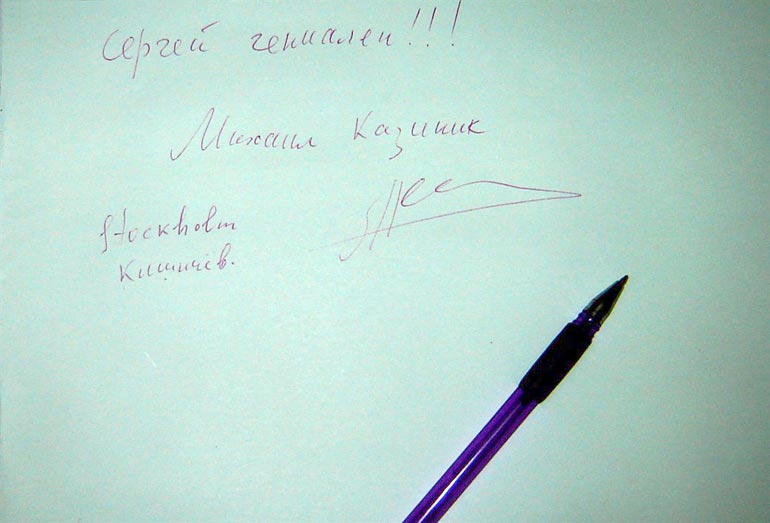 Сергей гениален!!!
Михаил Казиник
Stockholm
Кишинёв.